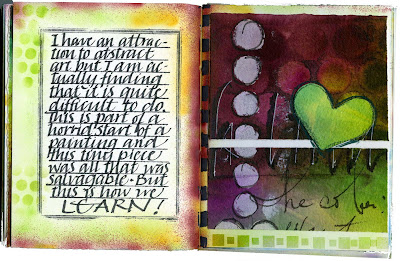 I have an attrac-
tion to abstract
art but I am ac-
tually finding
that it is quite
difficult to do.
This is part of a
horrid start of a
painting and
this tiny piece
was all that was
salvagable. But
this is how we
LEARN!
the